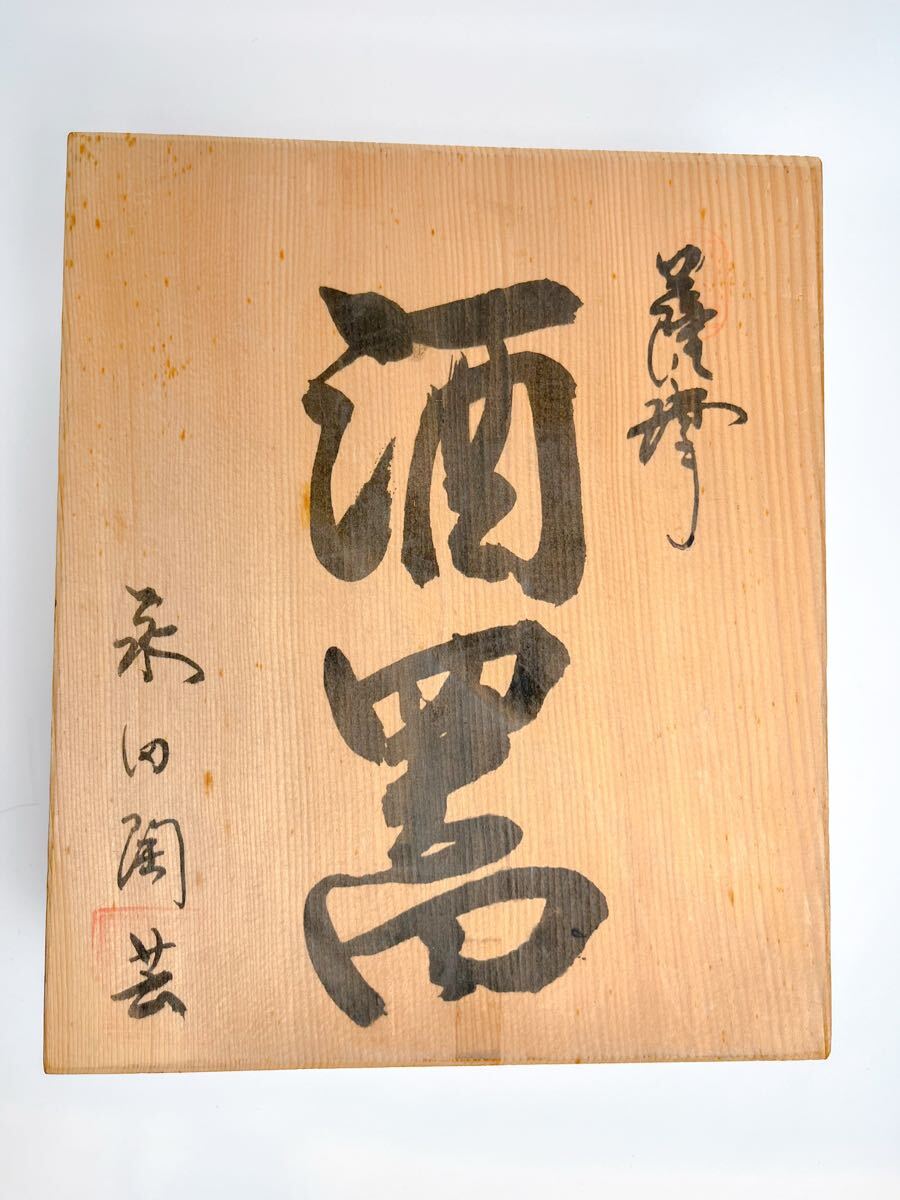 薩摩
酒器
永田陶芸